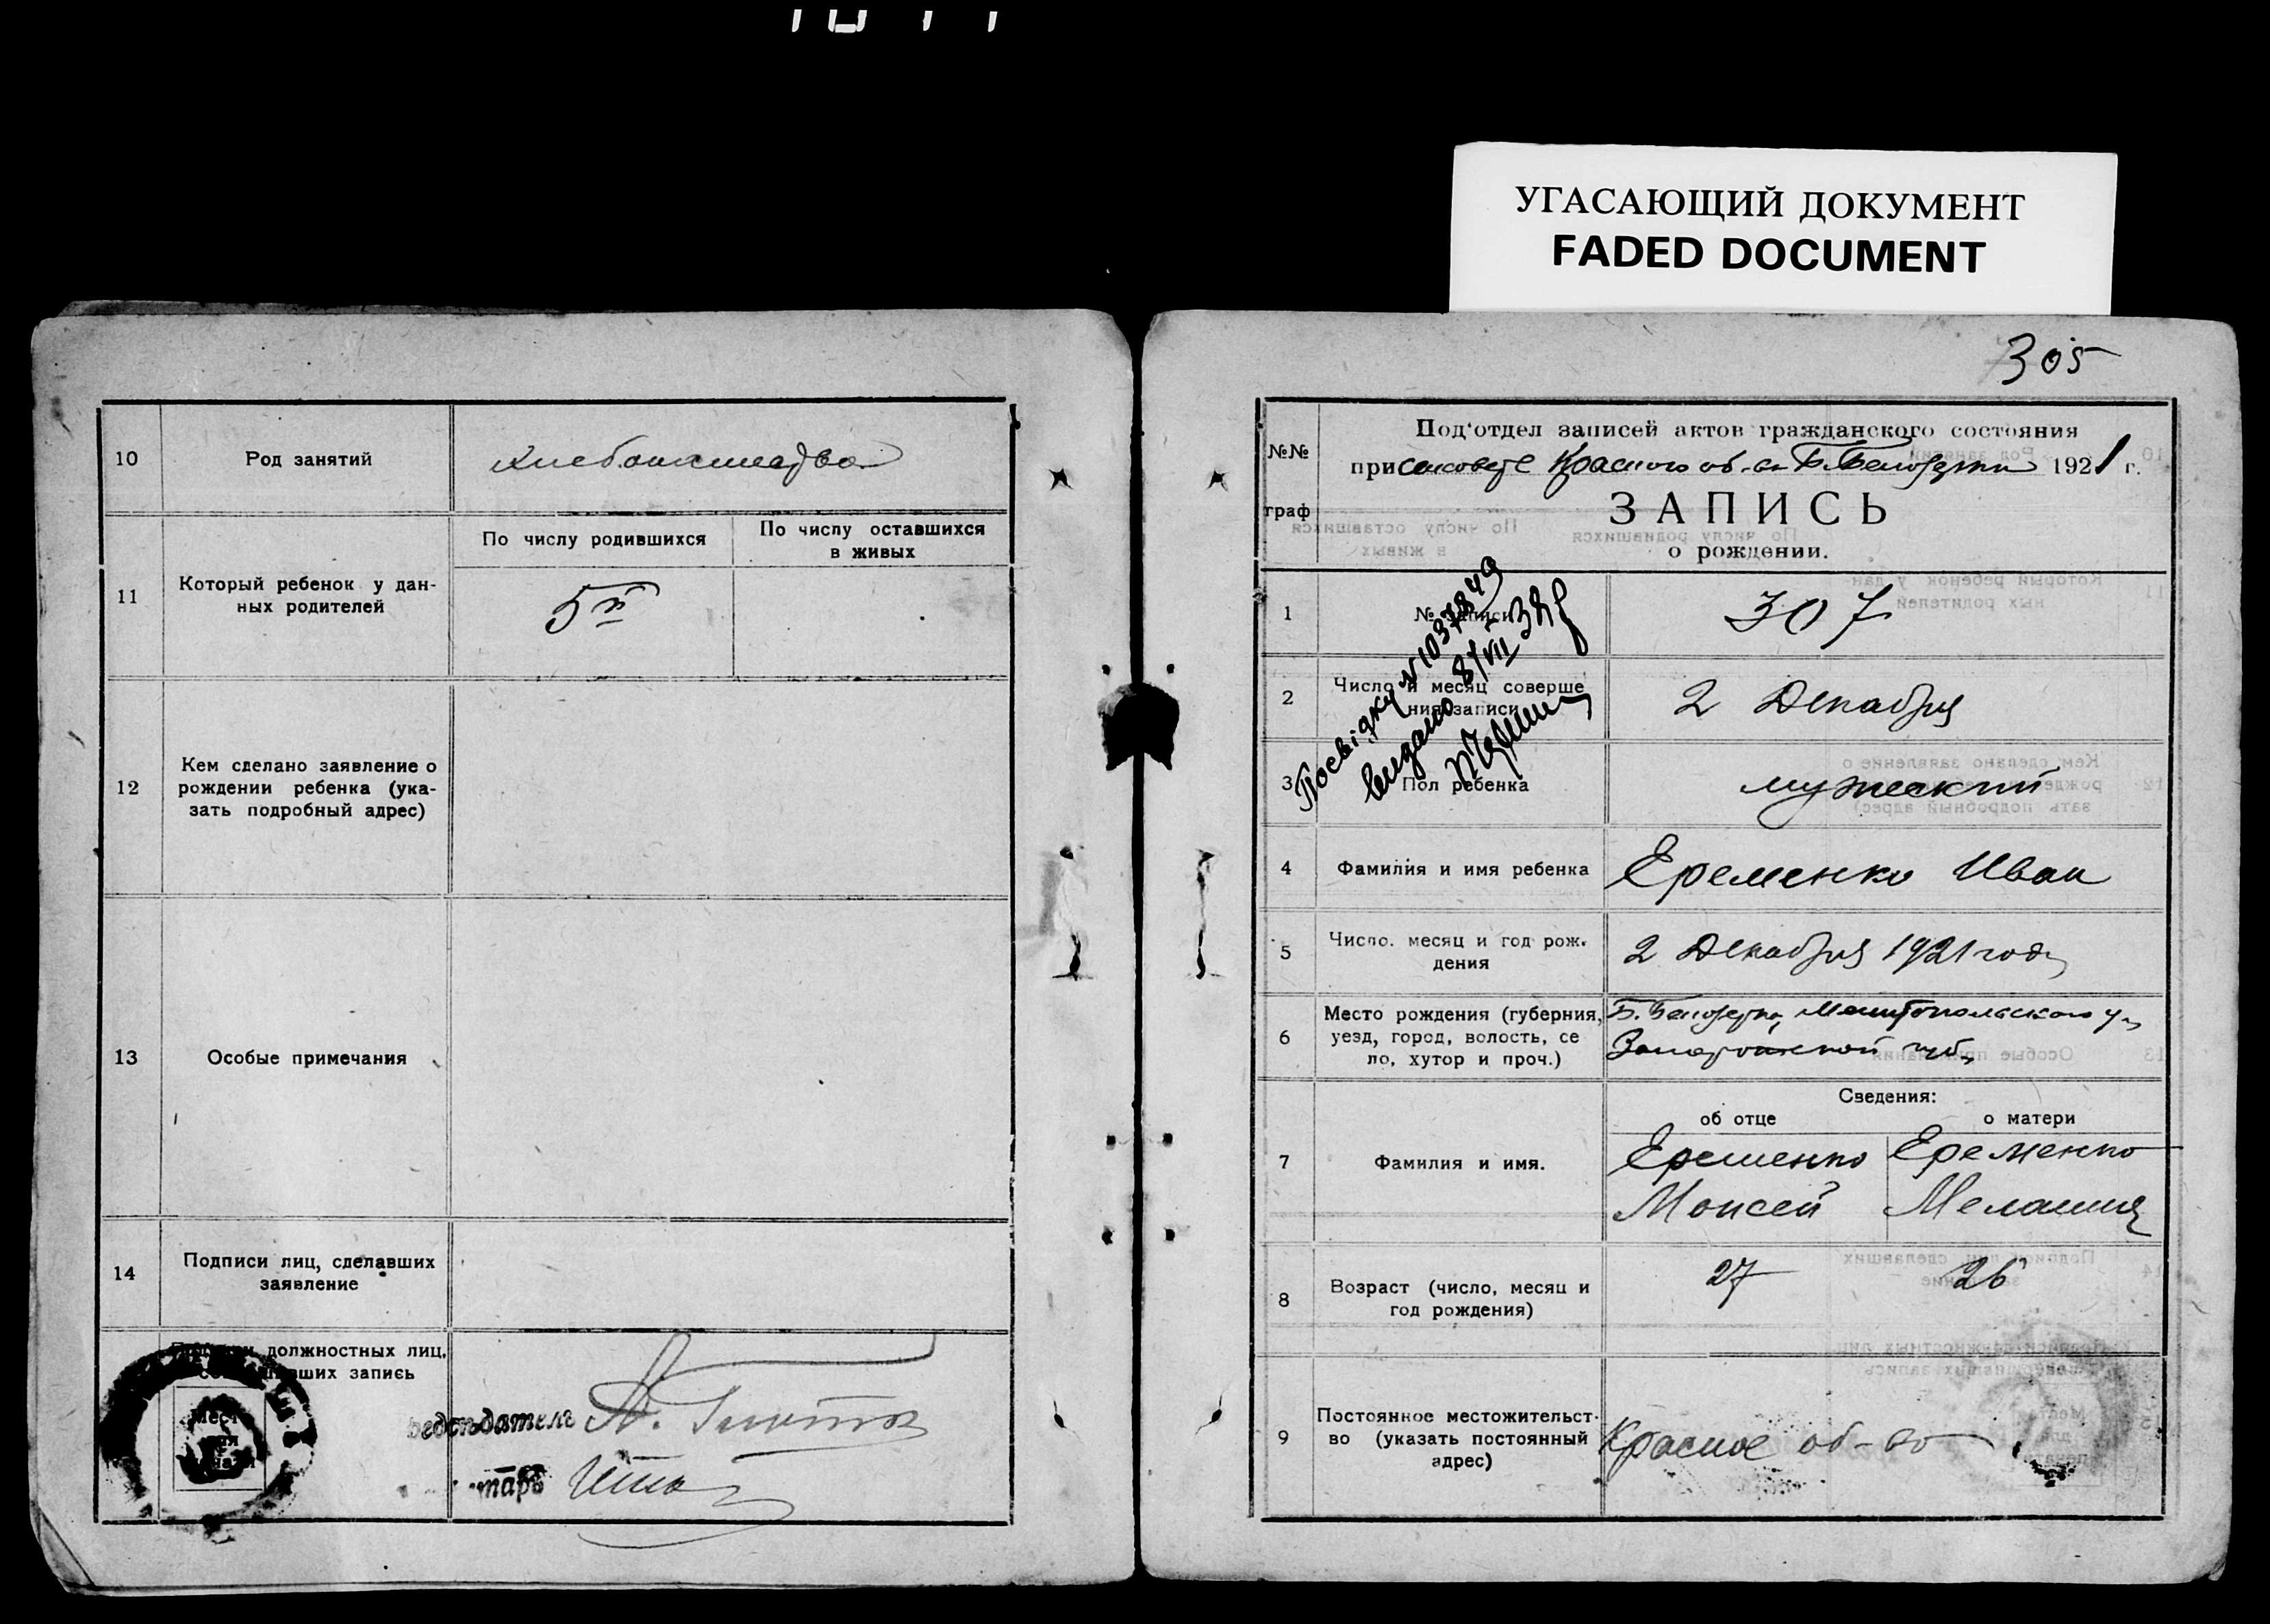 УГАСАЮЩИЙ ДОКУМЕНТ
FADED DOCUMENT
10
Род занятий
11
Который ребенок у дан-
ных родителей
По числу родившихся
По числу оставшихся
в живых
5й
12
Кем сделано заявление о
рождении ребенка (ука-
зать подробный адрес)
13
Особые примечания
14
Подписи лиц, сделавших
заявление
должностных лиц,
запись
305
№№
граф
Под'отдел записей актов гражданского состояния
при Красного об-ва Б. Белозерки 1921 г.
ЗАПИСЬ
о рождении.
1
№ записи
307
2
Число и месяц соверше
ния записи
2 Декабря
3
Пол ребенка
мужеский
Посвідку №1037849
видано 8/VII 38 р
4
Фамилия и имя ребенка
Еременко Иван
5
Число. месяц и год рож.
дения
2 Декабря 1921 года
6
Место рождения (губерния,
уезд, город, волость, се
ло, хутор и проч.)
Б. Белозерка, Мелитопольского у.
Запорожской губ.
Сведения:
об отце
о матери
7
Фамилия и имя.
Еременко
Моисей
Еременко
Мелания
8
Возраст (число, месяц и
год рождения)
27
26
9
Постоянное местожительст-
во (указать постоянный
адрес)
Красное об-во